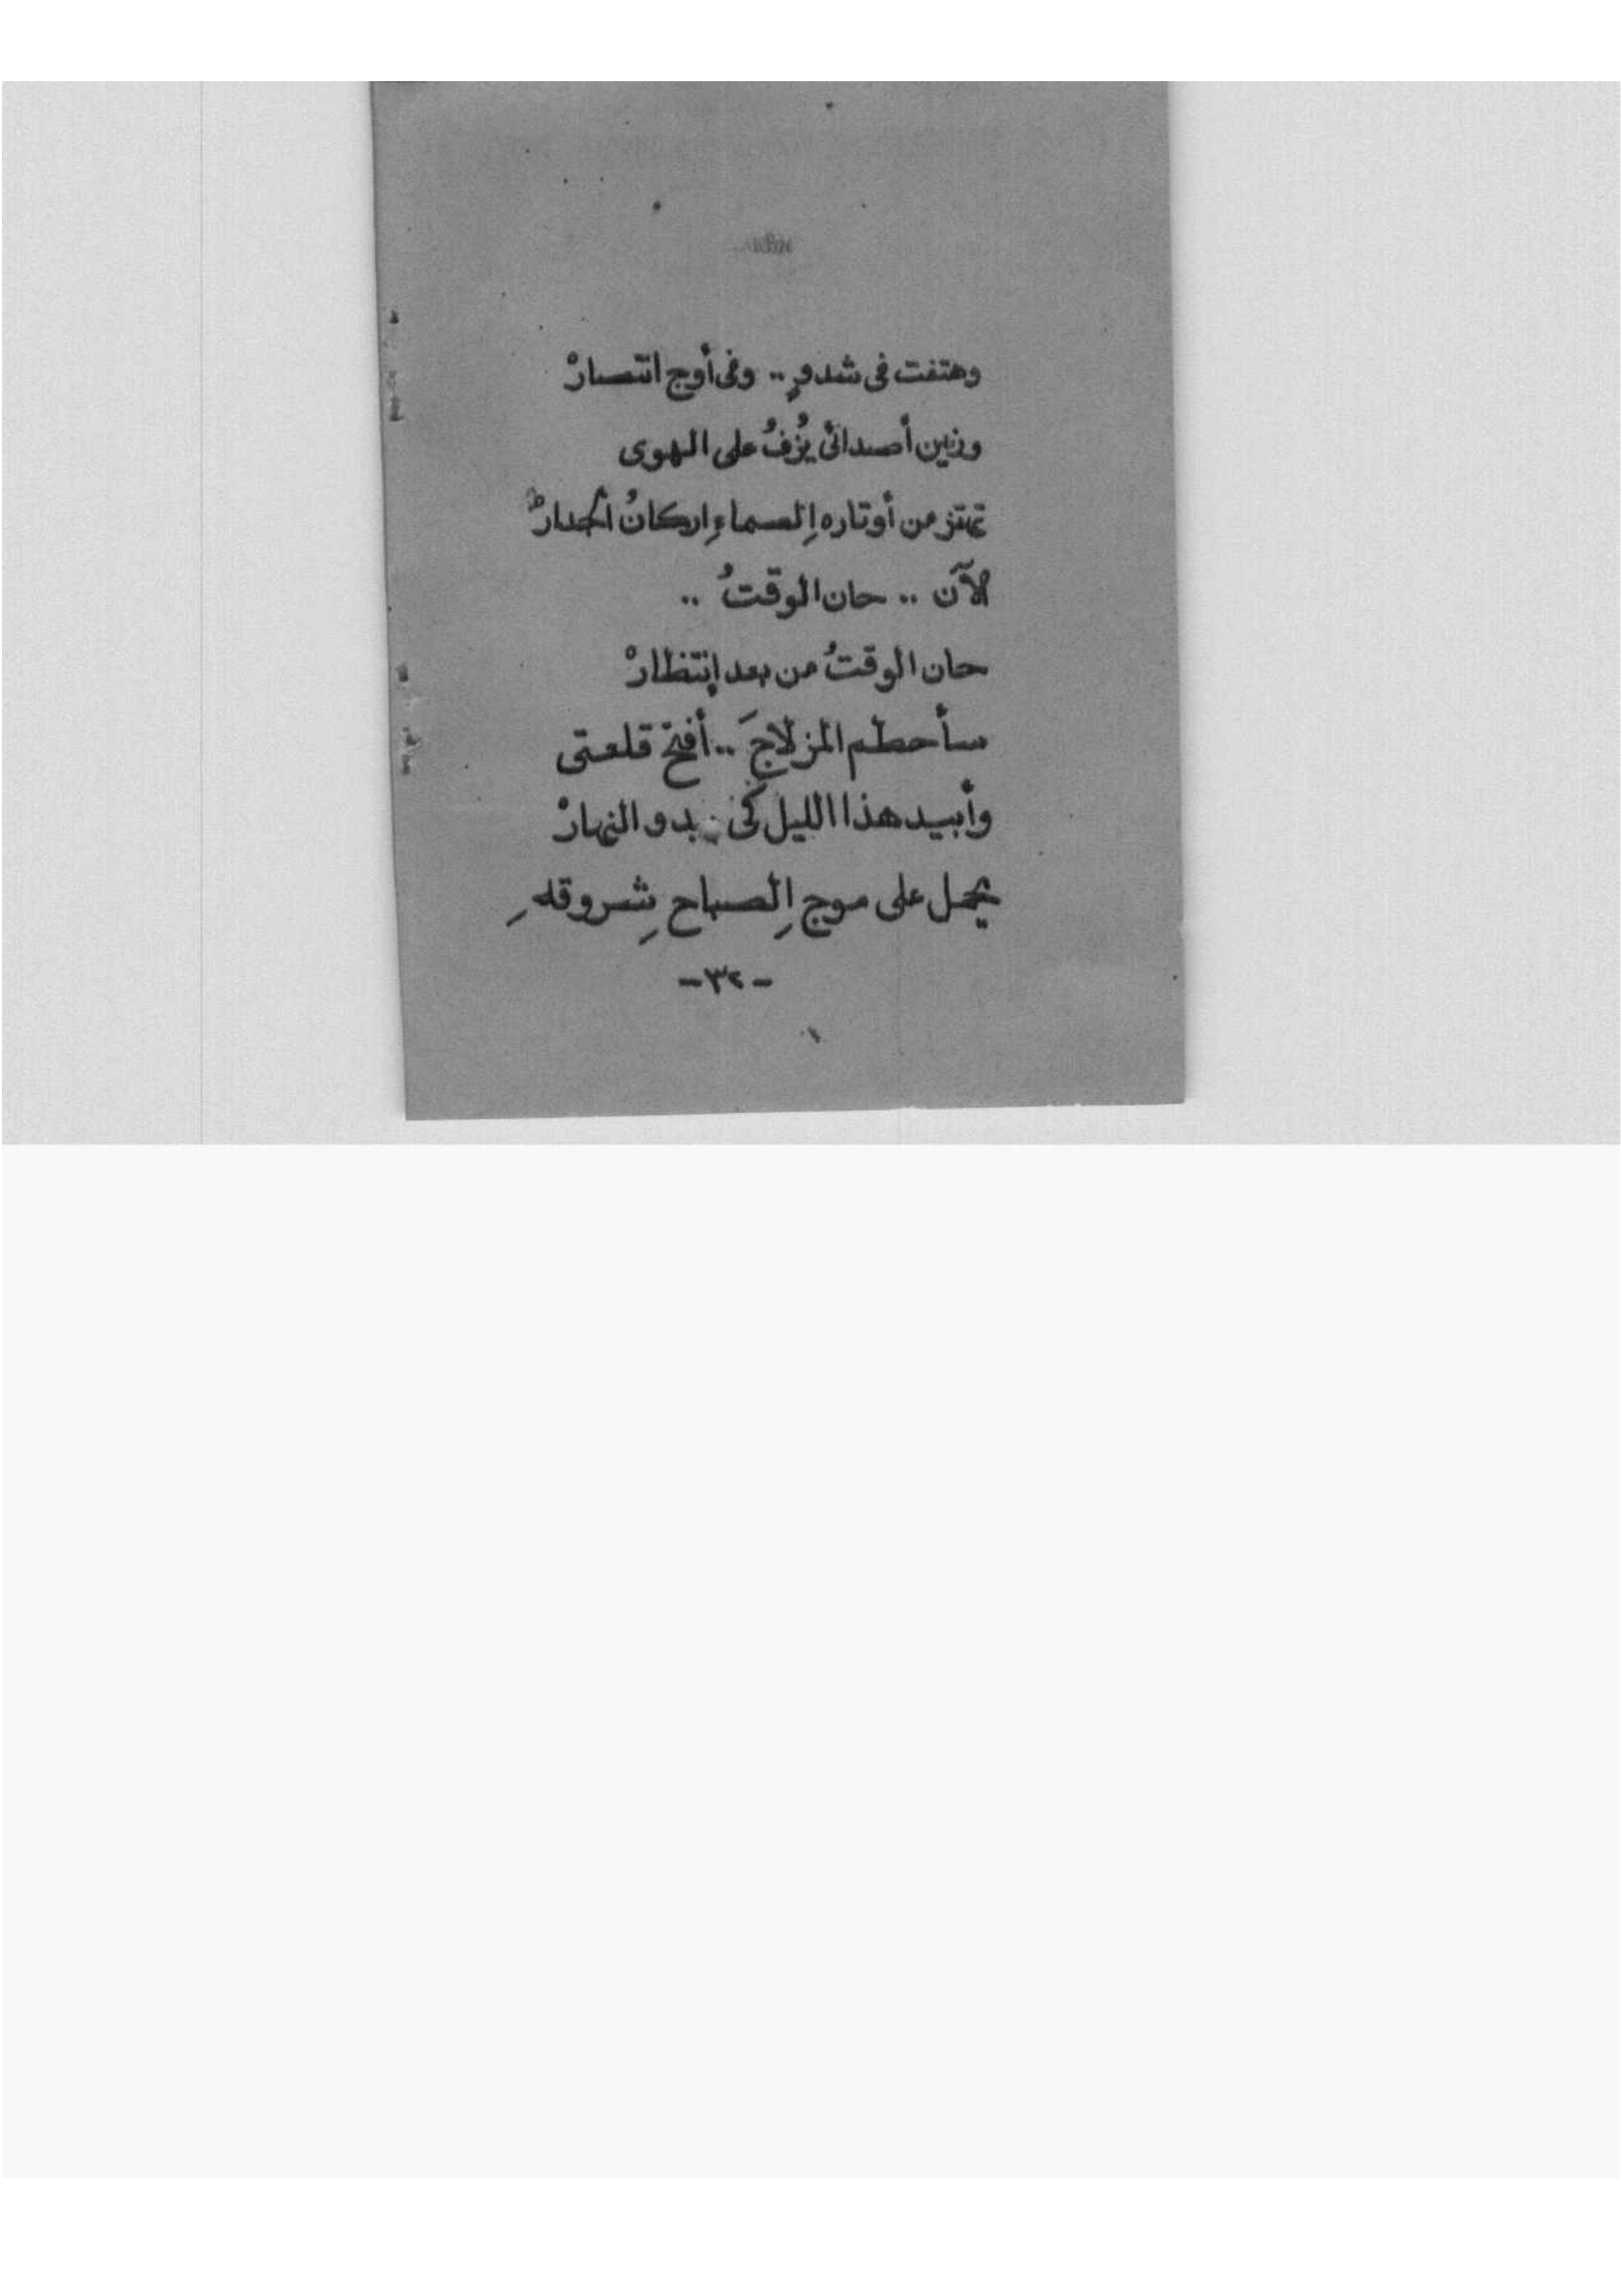 وهتفت فى شدوٍ .. وفى أوج انتصارْ
ورنين أصدائى يُزفُ على الهوى
تهتز من أوتاره الصماءِ اركانُ الجدارْ
الآن .. حان الوقتُ ..
حان الوقتُ من بعد إنتظارْ
سأحطم المزلاجَ .. أفتح قلعتى
وأبيد هذا الليل كى يبدو النهارْ
يجمل على موج الصباح شروقه
-٣٢-